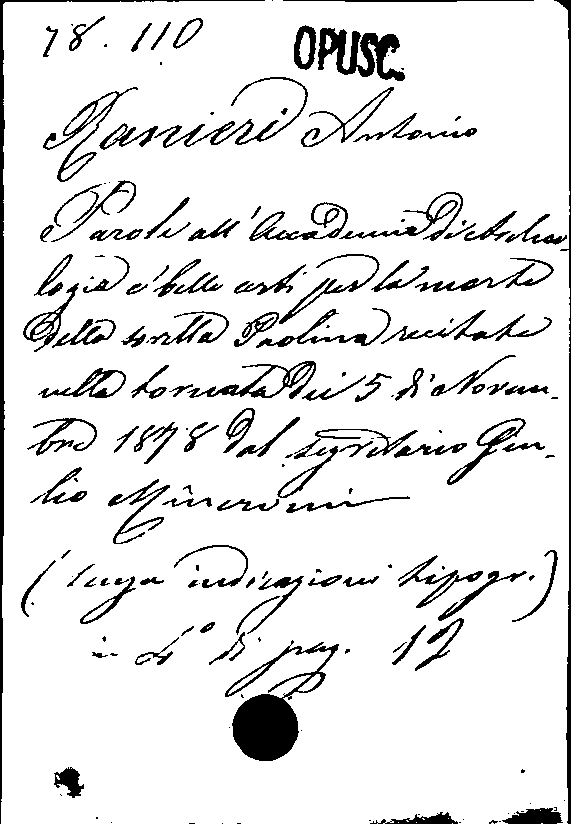 78. 110
OPUSC.
Ranieri Antonio
Parole all'Accademia di Archeo-
logia e belle arti per la morte
della sorella Paolina recitate
nella tornata dei 5 di Novem-
bre 1878 dal segretario Giu-
lio Minervini
(senza indicazioni tipogr.)
in 4° di pag. 12